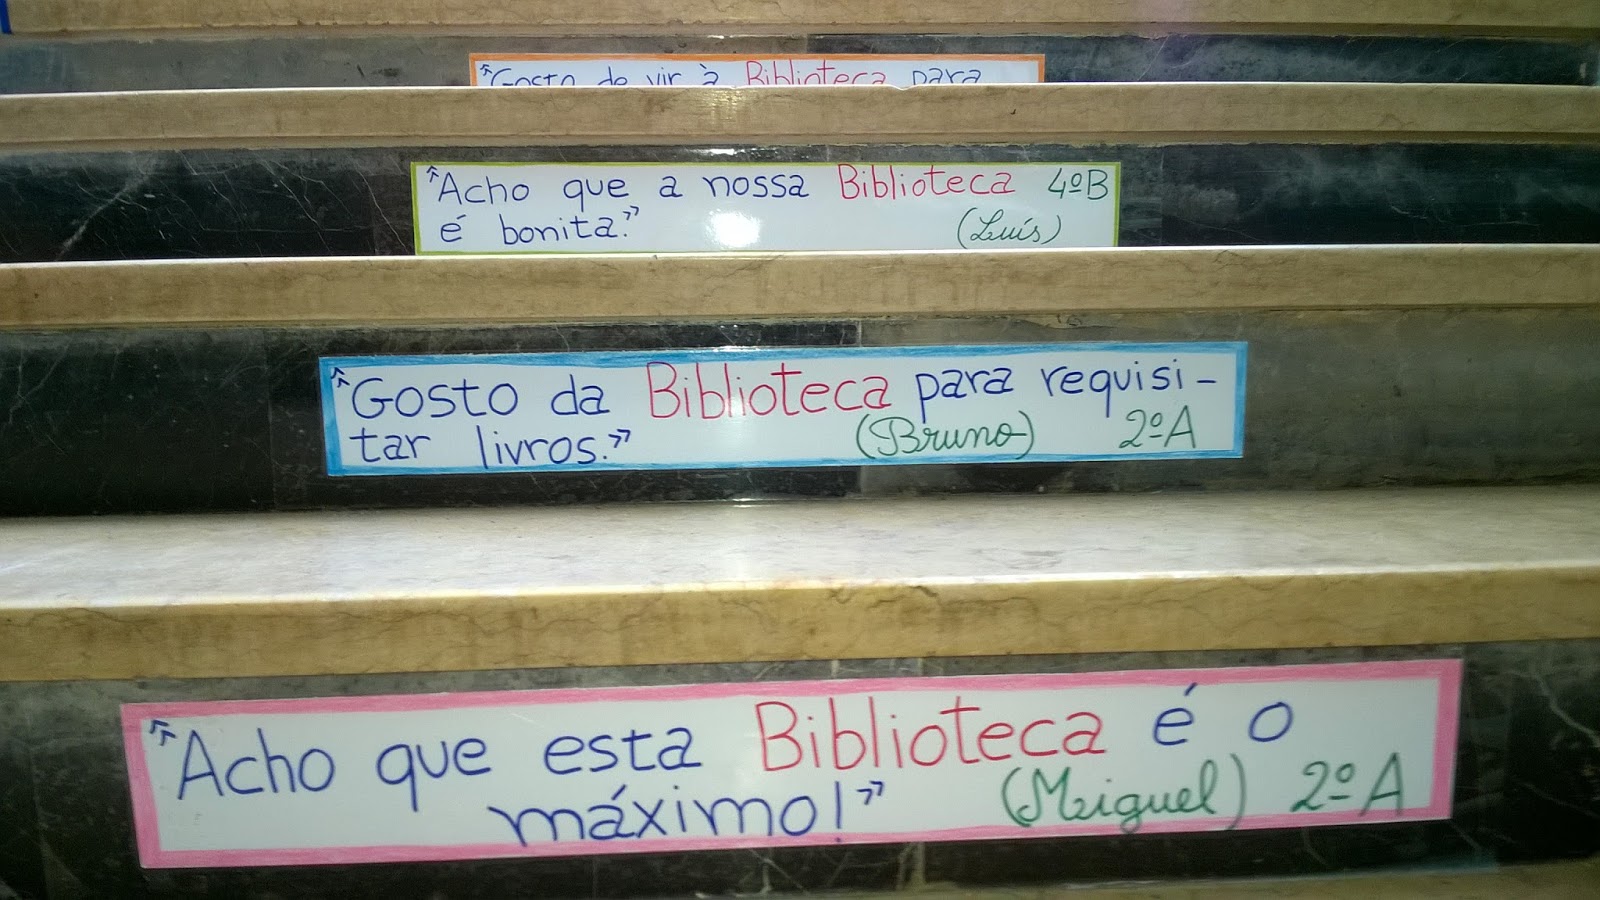 "Gosto de vir à Biblioteca para
"Acho que a nossa Biblioteca 4ºB
é bonita." (Luís)
"Gosto da Biblioteca para requisi-
tar livros." (Bruno) 2ºA
"Acho que esta Biblioteca é o
máximo!" (Miguel) 2ºA